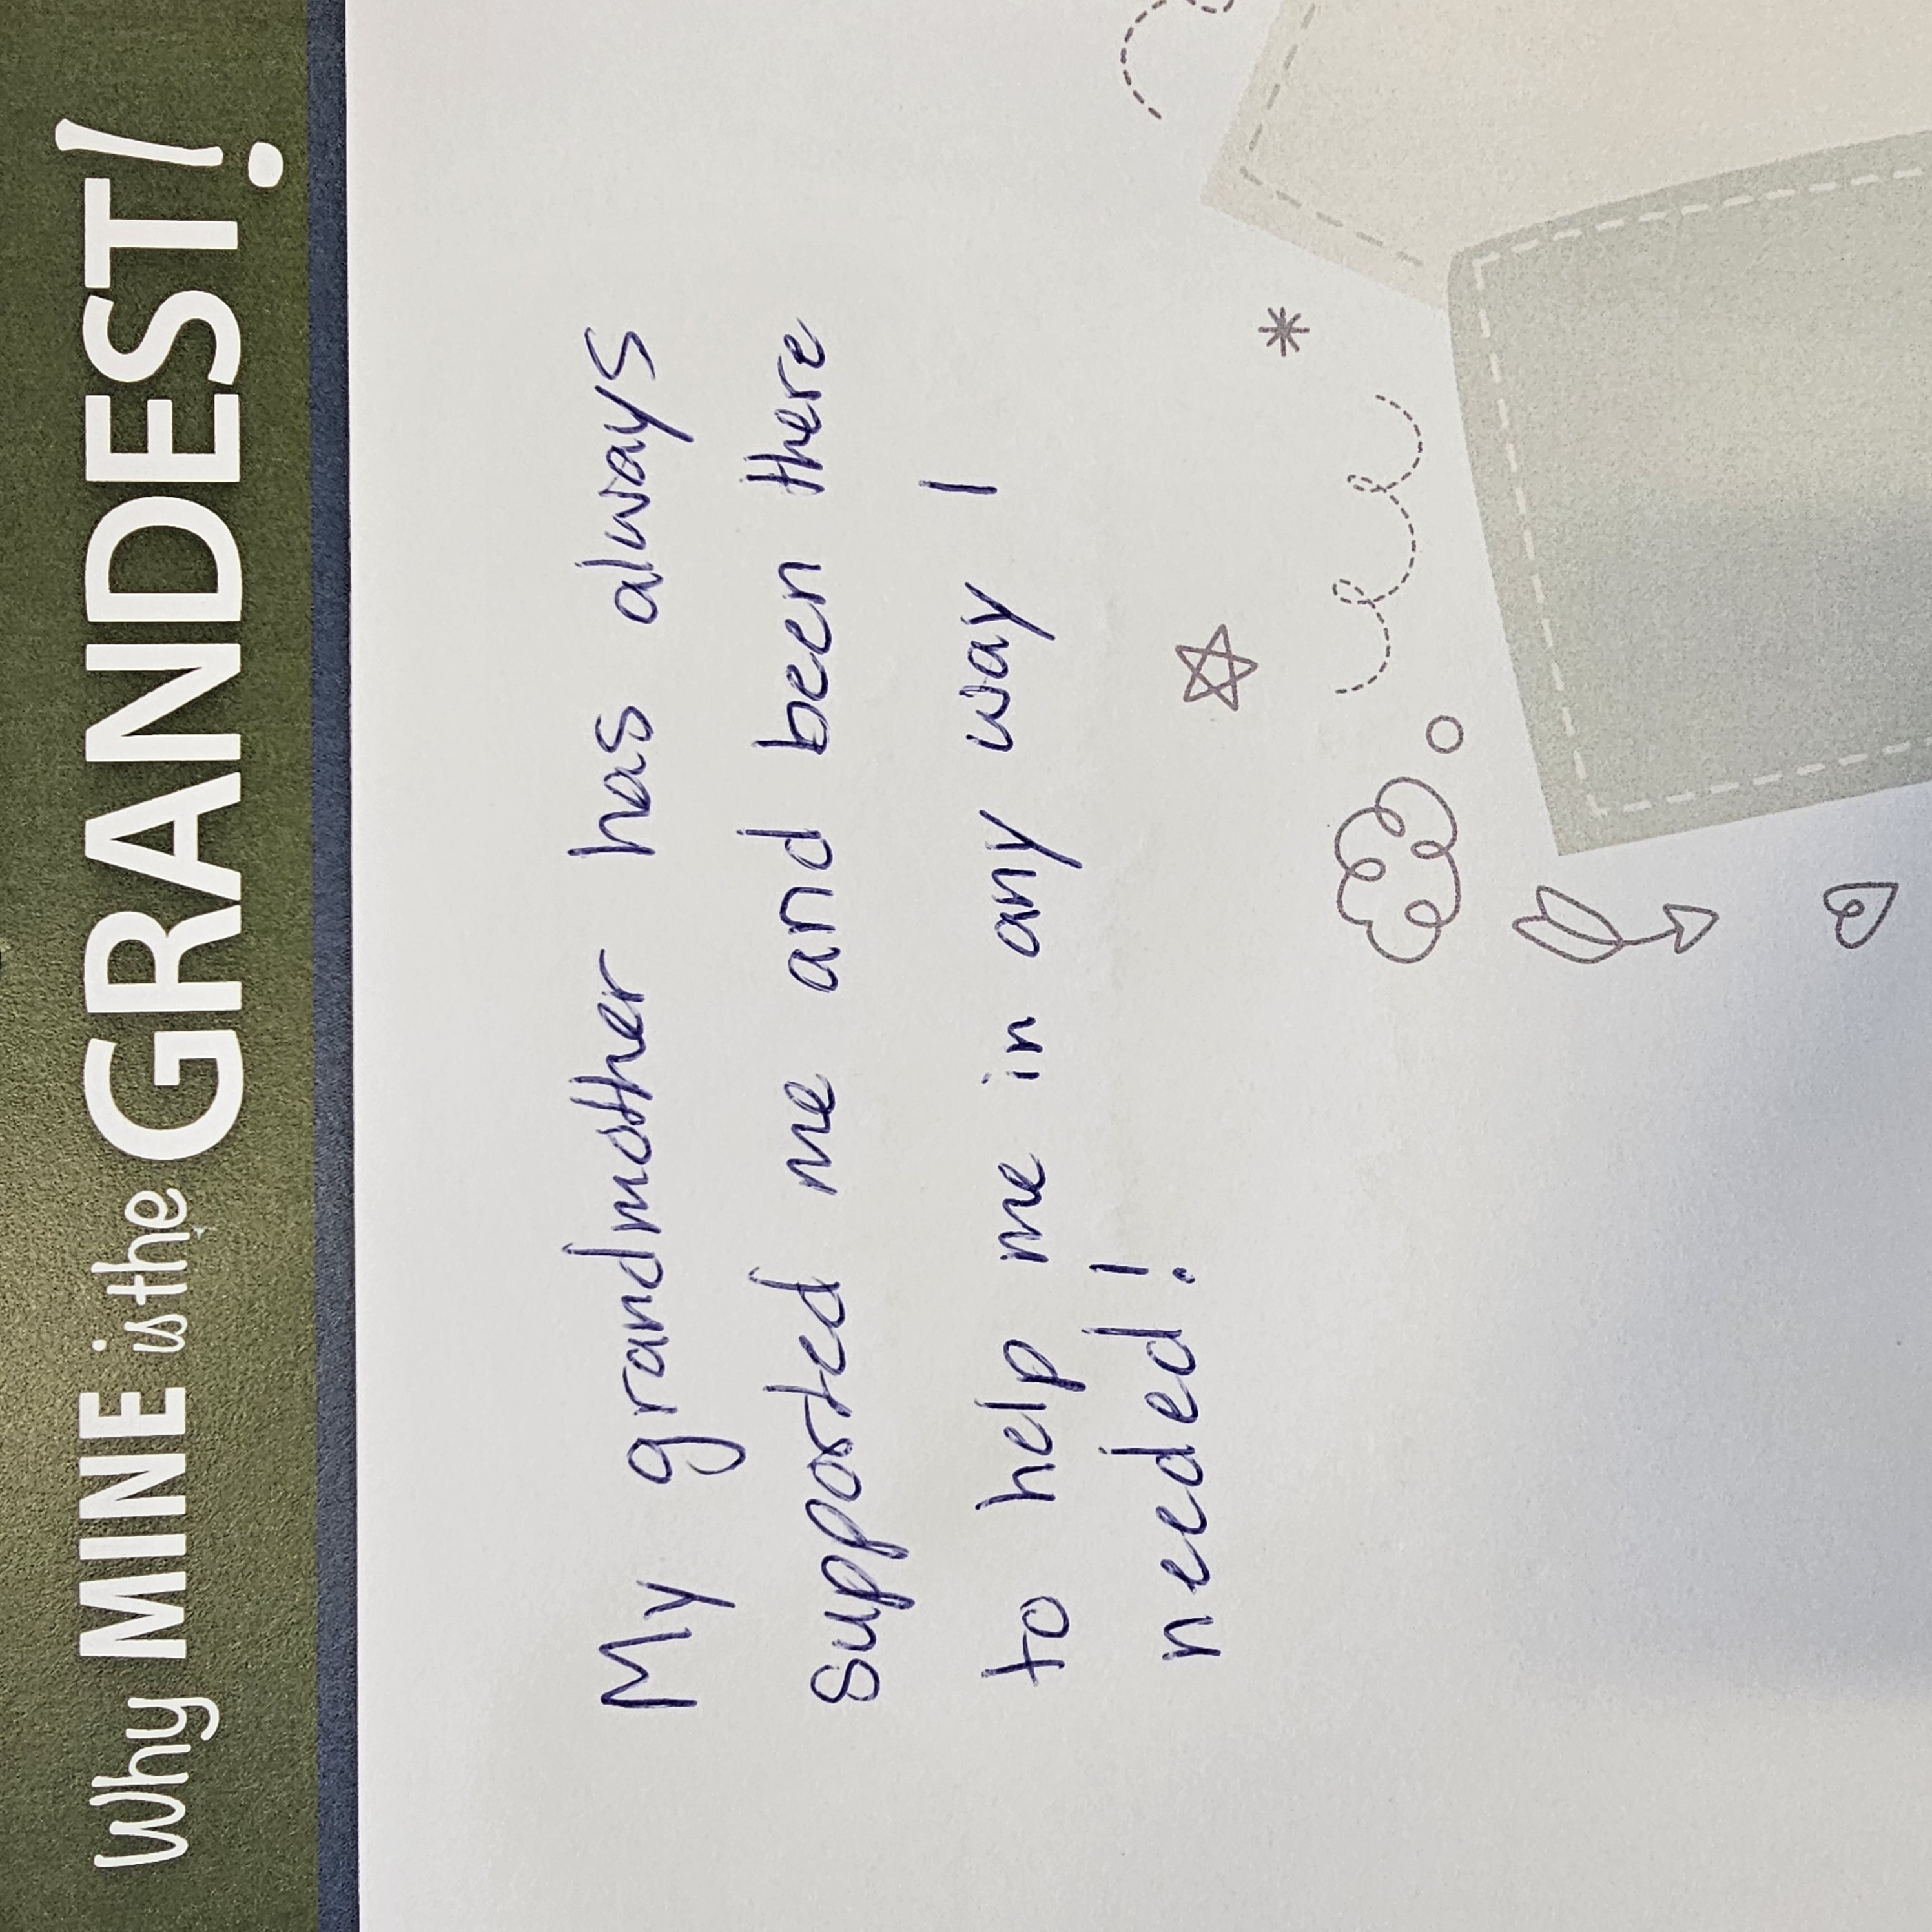 Why MINE is the GRANDEST!
My grandmother has always
supported me and been there
to help me in any way I
needed!